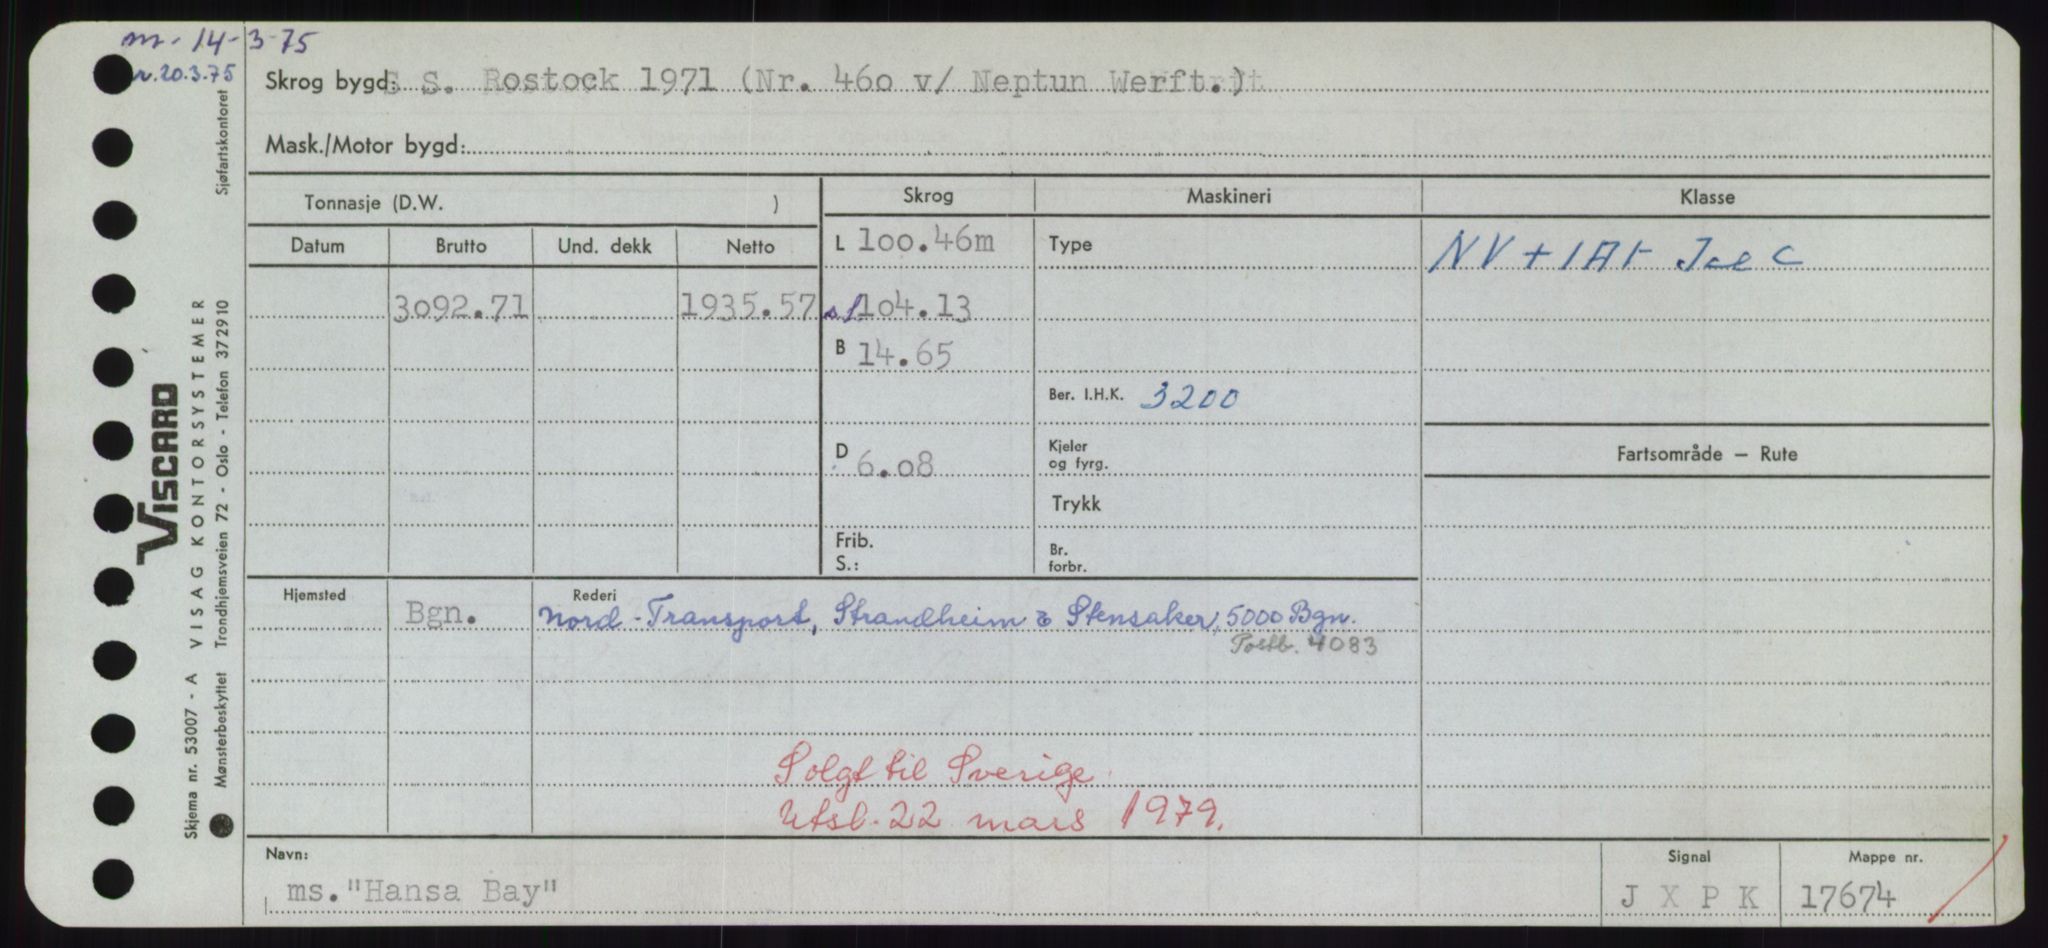 m. 14-3-75
r. 20.3.75
Skrog bygd: S S. Rostock 1971 (Nr. 46o v/ Neptun Werft.)
Mask./Motor bygd:
Tonnasje (D.W. )
Skrog
Maskineri
Klasse
Datum
Brutto
Und. dekk
Netto
L 1oo.46m
Type
NV + 1A1 Ice C
3o92.71
1935.57
sl 1o4.13
B 14.65
Ber. I.H.K. 3200
D 6.o8
Kjeler
og fyrg.
Fartsområde – Rute
Trykk
Frib.
S.:
Br.
forbr.
Hjemsted
Bgn.
Rederi
Nord-Transport, Strandheim & Stensaker, 5000 Bgn.
Postb. 4083
Solgt til Sverige.
Utsl. 22 mars 1979.
Navn:
ms."Hansa Bay"
Signal
J X P K
Mappe nr.
17674
Skjema nr. 53007 - A VISAG KONTORSYSTEMER
Mønsterbeskyttet Trondhjemsveien 72 - Oslo - Telefon 372910
Sjøfartskontoret
VISCARD